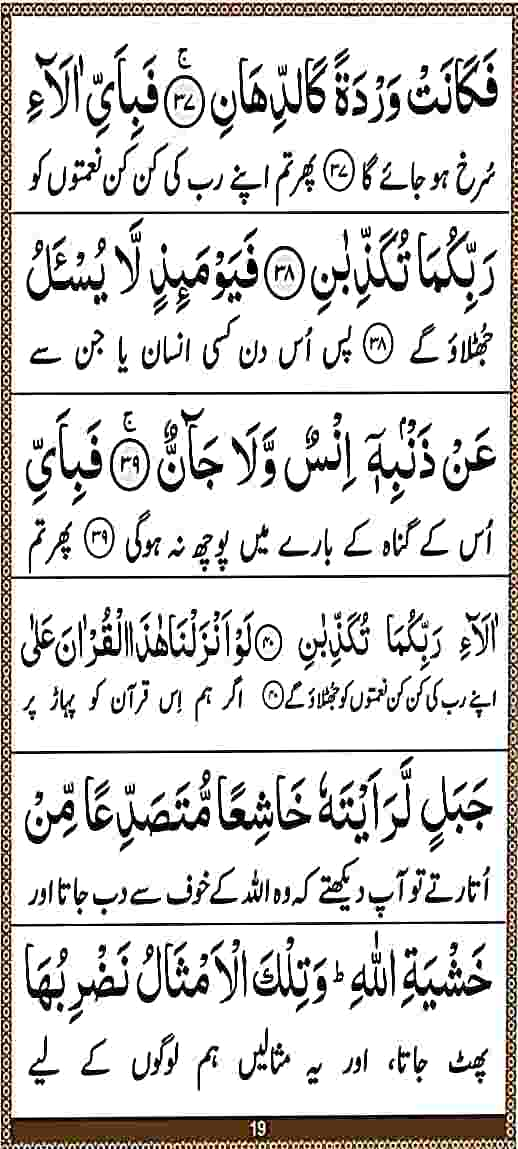 فَكَانَتْ وَرْدَةً كَالدِّهَانِ ﴿۳۷﴾ۚ فَبِاَيِّ اٰلَآءِ
سُرخ ہو جائے گا ﴿۳۷﴾ پھر تم اپنے رب کی کن کن نعمتوں کو
رَبِّكُمَا تُكَذِّبٰنِ ﴿۳۸﴾ فَيَوْمَئِذٍ لَّا يُسْـَٔلُ
جُھٹلاؤ گے ﴿۳۸﴾ پس اُس دن کسی انسان یا جن سے
عَنْ ذَنْۢبِهٖۤ اِنْسٌ وَّلَا جَآنٌّ ﴿۳۹﴾ۚ فَبِاَيِّ
اُس کے گناہ کے بارے میں پوچھ نہ ہوگی ﴿۳۹﴾ پھر تم
اٰلَآءِ رَبِّكُمَا تُكَذِّبٰنِ ﴿۴۰﴾ لَوْ اَنْزَلْنَا هٰذَا الْقُرْاٰنَ عَلٰى
اپنے رب کی کن کن نعمتوں کو جُھٹلاؤ گے ﴿۴۰﴾ اگر ہم اِس قرآن کو پہاڑ پر
جَبَلٍ لَّرَاَيْتَهٗ خَاشِعًا مُّتَصَدِّعًا مِّنْ
اُتارتے تو آپ دیکھتے کہ وہ اللہ کے خوف سے دب جاتا اور
خَشْيَةِ اللّٰهِ ؕ وَتِلْكَ الْاَمْثَالُ نَضْرِبُهَا
پھٹ جاتا، اور یہ مثالیں ہم لوگوں کے لیے
19